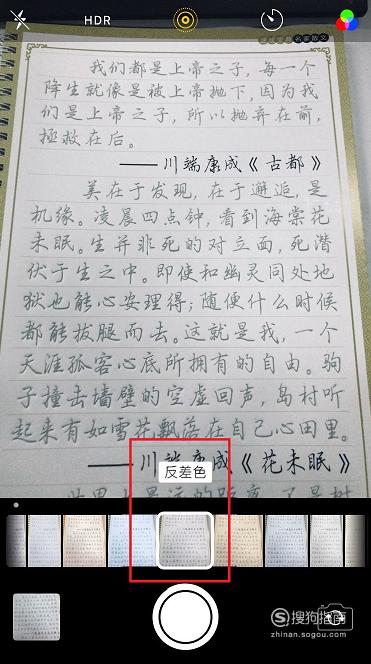 HDR
名家散文
我们都是上帝之子，每一个
降生就像是被上帝抛下，因为我
们是上帝之子，所以抛弃在前，
拯救在后。
——川端康成《古都》
美在于发现，在于邂逅，是
机缘。凌晨四点钟，看到海棠花
未眠。生并非死的对立面，死潜
伏于生之中。即使和幽灵同处地
狱也能心安理得；随便什么时候
都能拔腿而去。这就是我，一个
天涯孤客心底所拥有的自由。驹
子撞击墙壁的空虚回声，岛村听
起来有如雪花飘落在自己心田里。
——川端康成《花未眠》
反差色
搜狗指南
zhinan.sogou.com